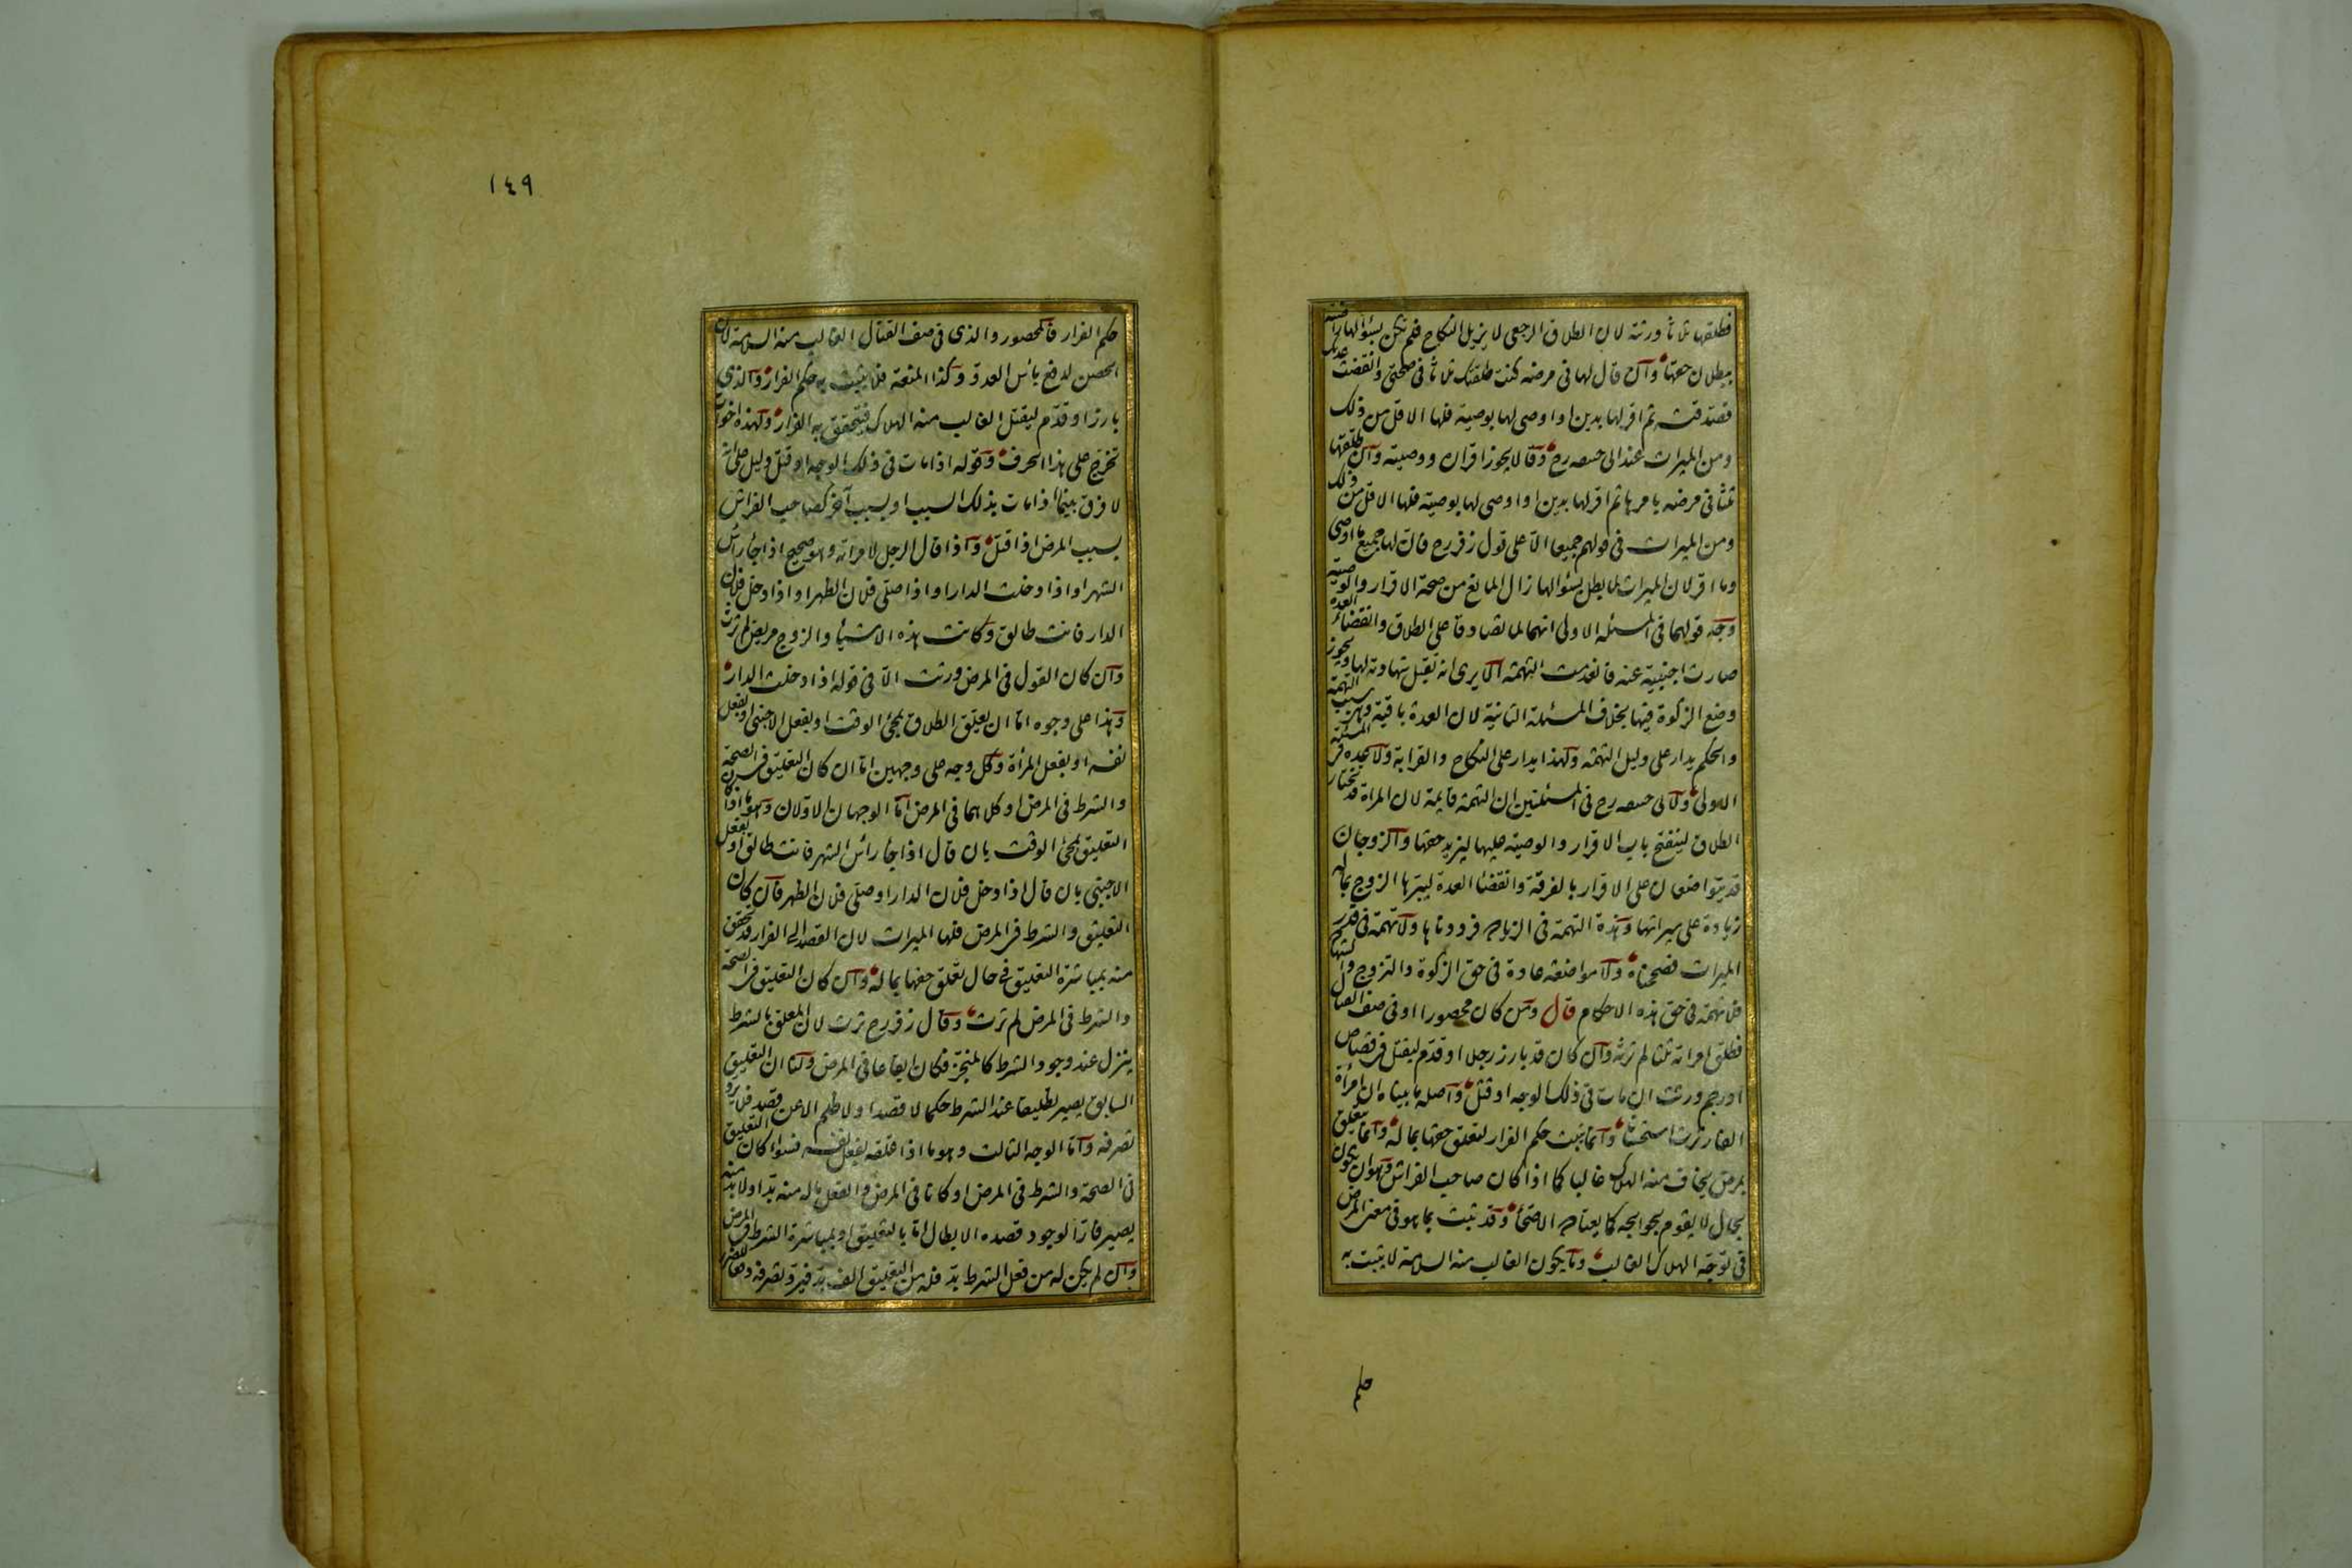 فطلقها ثلاثا ورثته لان الطلاق الرجعى لا يزيل النكاح فلم تكن بسؤالها راضية
ببطلان حقها وان قال لها فى مرضه كنت طلقتك ثلاثا فى صحتى وانقضت عدتك
فصدقته ثم اقر لها بدين او اوصى لها بوصية فلها الاقل من ذلك
ومن الميراث عند ابى حنيفه رح وقالا يجوز اقراره ووصيته وان طلقها
ثلثا فى مرضه بامرها ثم اقر لها بدين او اوصى لها بوصية فلها الاقل من ذلك
ومن الميراث فى قولهم جميعا الا على قول زفر رح فان لها جميع ما اوصى
وما اقر لان الميراث لما بطل بسؤالها زال المانع من صحة الاقرار والوصية
وجه قولهما فى المسئلة الاولى انهما لما تصادقا على الطلاق وانقضاء العدة
صارت اجنبية عنه فانعدمت التهمة الا يرى انه تقبل شهادته لها ويجوز
وضع الزكوة فيها بخلاف المسئلة الثانية لان العدة باقية وهى سبب التهمة
والحكم يدار على دليل التهمة ولهذا يدار على النكاح والقرابة ولا عدة فى المسئلة
الاولى ولابى حنيفه رح فى المسئلتين ان التهمة قايمة لان المراة قد تختار
الطلاق لينفتح باب الاقرار والوصية عليها ليزيد حقها والزوجان
قد يتواضعان على الاقرار بالفرقة وانقضا العدة ليبرها الزوج بماله
زيادة على ميراثها وهذه التهمة فى الزيادة فرددناها ولا تهمة فى قدر
الميراث فصححناه ولا مواضعة عادة فى حق الزكوة والتزوج والشهادة
فلا تهمة فى حق هذه الاحكام قال ومن كان محصورا او فى صف القتال
فطلق امراته ثلثا لم ترثه وان كان قد بارز رجلا او قدم ليقتل فى قصاص
او رجم ورثت ان مات فى ذلك الوجه او قتل واصله ما بيناه ان امرأة
الفار ترث استحسانا وانما يثبت حكم الفرار لتعلق حقها بماله وانما يتعلق
بمرض يخاف منه الهلاك غالبا كما اذا كان صاحب الفراش وهو ان يكون
بحال لا يقوم بحوايجه كما يعتاده الاصحاء وقد يثبت بما هو فى معنى المرض
فى توجه الهلاك الغالب وما يكون الغالب منه السلامة لا يثبت به
حكم
١٤٩
حكم الفرار فالمحصور والذى فى صف القتال الغالب منه السلامة لان
الحصن لدفع بأس العدو وكذا المنعة فلا يثبت به حكم الفرار والذى
بارز او قدم ليقتل الغالب منه الهلاك فيتحقق به الفرار ولهذه اخوات
تخرج على هذا الحرف وقوله اذا مات فى ذلك الوجه او قتل دليل على انه
لا فرق بينما اذا مات بذلك السبب او بسبب آخر كصاحب الفراش
بسبب المرض اذا قتل واذا قال الرجل لامراته وهو صحيح اذا جاء رأس
الشهر او اذا دخلت الدار او اذا صلى فلان الظهر او اذا دخل فلان
الدار فانت طالق وكانت هذه الاشياء والزوج مريض لم ترث
وان كان القول فى المرض ورثت الا فى قوله اذا دخلت الدار
وهذا على وجوه اما ان يعلق الطلاق بمجئ الوقت او بفعل الاجنبى او بفعل
نفسه او بفعل المرأة وكل وجه على وجهين اما ان كان التعليق فى الصحة
والشرط فى المرض او كلاهما فى المرض اما الوجهان الاولان وهو ما اذا كان
التعليق بمجئ الوقت بان قال اذا جاء رأس الشهر فانت طالق او بفعل
الاجنبى بان قال اذا دخل فلان الدار او صلى فلان الظهر فان كان
التعليق والشرط فى المرض فلها الميراث لان القصد الى الفرار قد تحقق
منه بمباشرة التعليق فى حال تعلق حقها بماله وان كان التعليق فى الصحة
والشرط فى المرض لم ترث وقال زفر رح ترث لان المعلق بالشرط
ينزل عند وجود الشرط كالمنجز فكان ايقاعا فى المرض ولنا ان التعليق
السابق يصير تطليقا عند الشرط حكما لا قصدا ولا ظلم الا عن قصد فلا يرد
تصرفه واما الوجه الثالث وهو ما اذا علقه بفعل نفسه فسواء كان التعليق
فى الصحة والشرط فى المرض او كانا فى المرض والفعل ماله منه بد او لا بد منه
يصير فارا لوجود قصده الابطال اما بالتعليق او بمباشرة الشرط فى المرض
وان لم يكن له من فعل الشرط بد فله من التعليق الف بد فيرد تصرفه دفعا للضرر